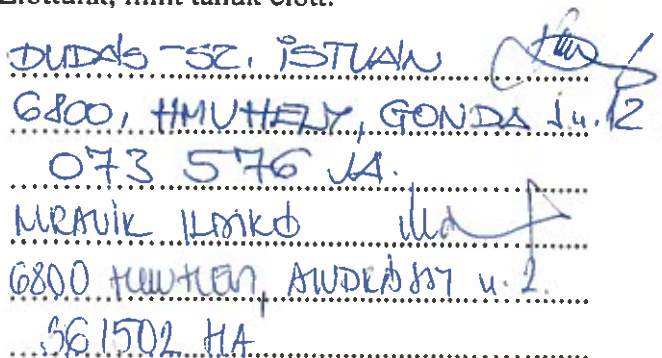 Előttünk, mint tanúk előtt:
DUDÁS-SZ. ISTVÁN
6800, HMVHELY, GONDA J u. 12
073 576 JA.
MRAVIK ILDIKÓ
6800 HMVHELY, ANDRÁSSY u. 2.
361502 HA